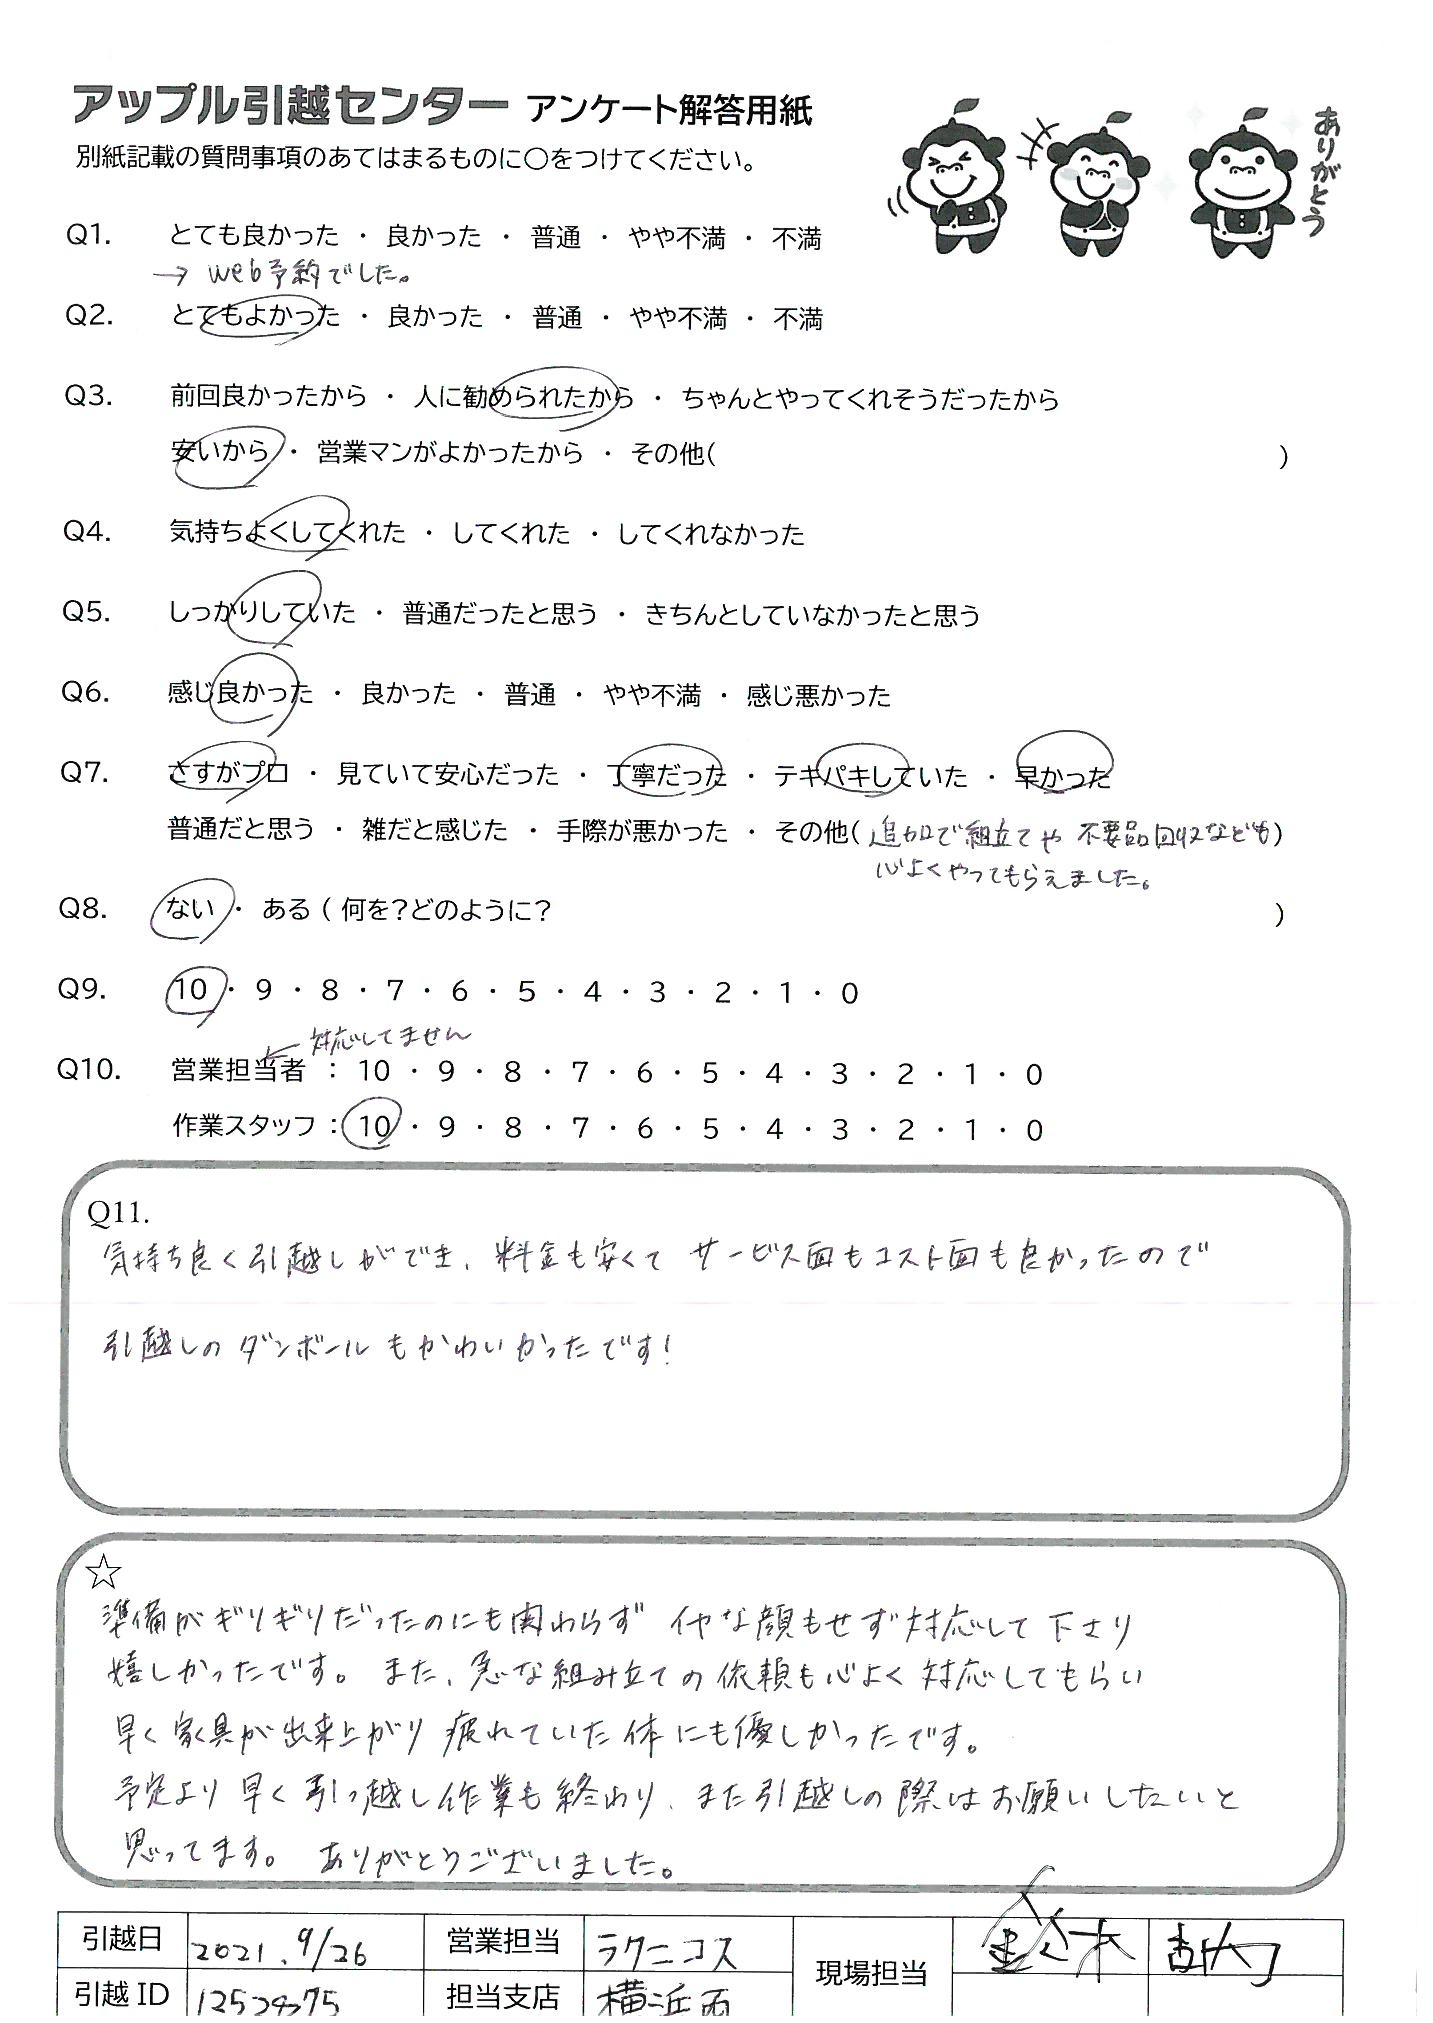 アップル引越センター アンケート解答用紙
別紙記載の質問事項のあてはまるものに○をつけてください。
ありがとう
Q1. とても良かった ・ 良かった ・ 普通 ・ やや不満 ・ 不満
→ web予約でした。
Q2. とてもよかった ・ 良かった ・ 普通 ・ やや不満 ・ 不満
Q3. 前回良かったから ・ 人に勧められたから ・ ちゃんとやってくれそうだったから
安いから ・ 営業マンがよかったから ・ その他( )
Q4. 気持ちよくしてくれた ・ してくれた ・ してくれなかった
Q5. しっかりしていた ・ 普通だったと思う ・ きちんとしていなかったと思う
Q6. 感じ良かった ・ 良かった ・ 普通 ・ やや不満 ・ 感じ悪かった
Q7. さすがプロ ・ 見ていて安心だった ・ 丁寧だった ・ テキパキしていた ・ 早かった
普通だと思う ・ 雑だと感じた ・ 手際が悪かった ・ その他( 追加で組立てや 不要品回収なども)
心よくやってもらえました。
Q8. ない ・ ある ( 何を?どのように? )
Q9. 10 ・ 9 ・ 8 ・ 7 ・ 6 ・ 5 ・ 4 ・ 3 ・ 2 ・ 1 ・ 0
← 対応してません
Q10. 営業担当者 : 10 ・ 9 ・ 8 ・ 7 ・ 6 ・ 5 ・ 4 ・ 3 ・ 2 ・ 1 ・ 0
作業スタッフ : 10 ・ 9 ・ 8 ・ 7 ・ 6 ・ 5 ・ 4 ・ 3 ・ 2 ・ 1 ・ 0
Q11.
気持ち良く引越しができ、料金も安くて サービス面もコスト面も良かったので
引越しのダンボールもかわいかったです!
☆
準備がギリギリだったのにも関わらず イヤな顔もせず対応して下さり
嬉しかったです。また、急な組み立ての依頼も心よく対応してもらい
早く家具が出来上がり 疲れていた体にも優しかったです。
予定より早く引っ越し作業も終わり、また引越しの際はお願いしたいと
思ってます。 ありがとうございました。
引越日 2021.9/26 営業担当 ラクニコス 現場担当 鈴木
引越ID 担当支店 横浜西